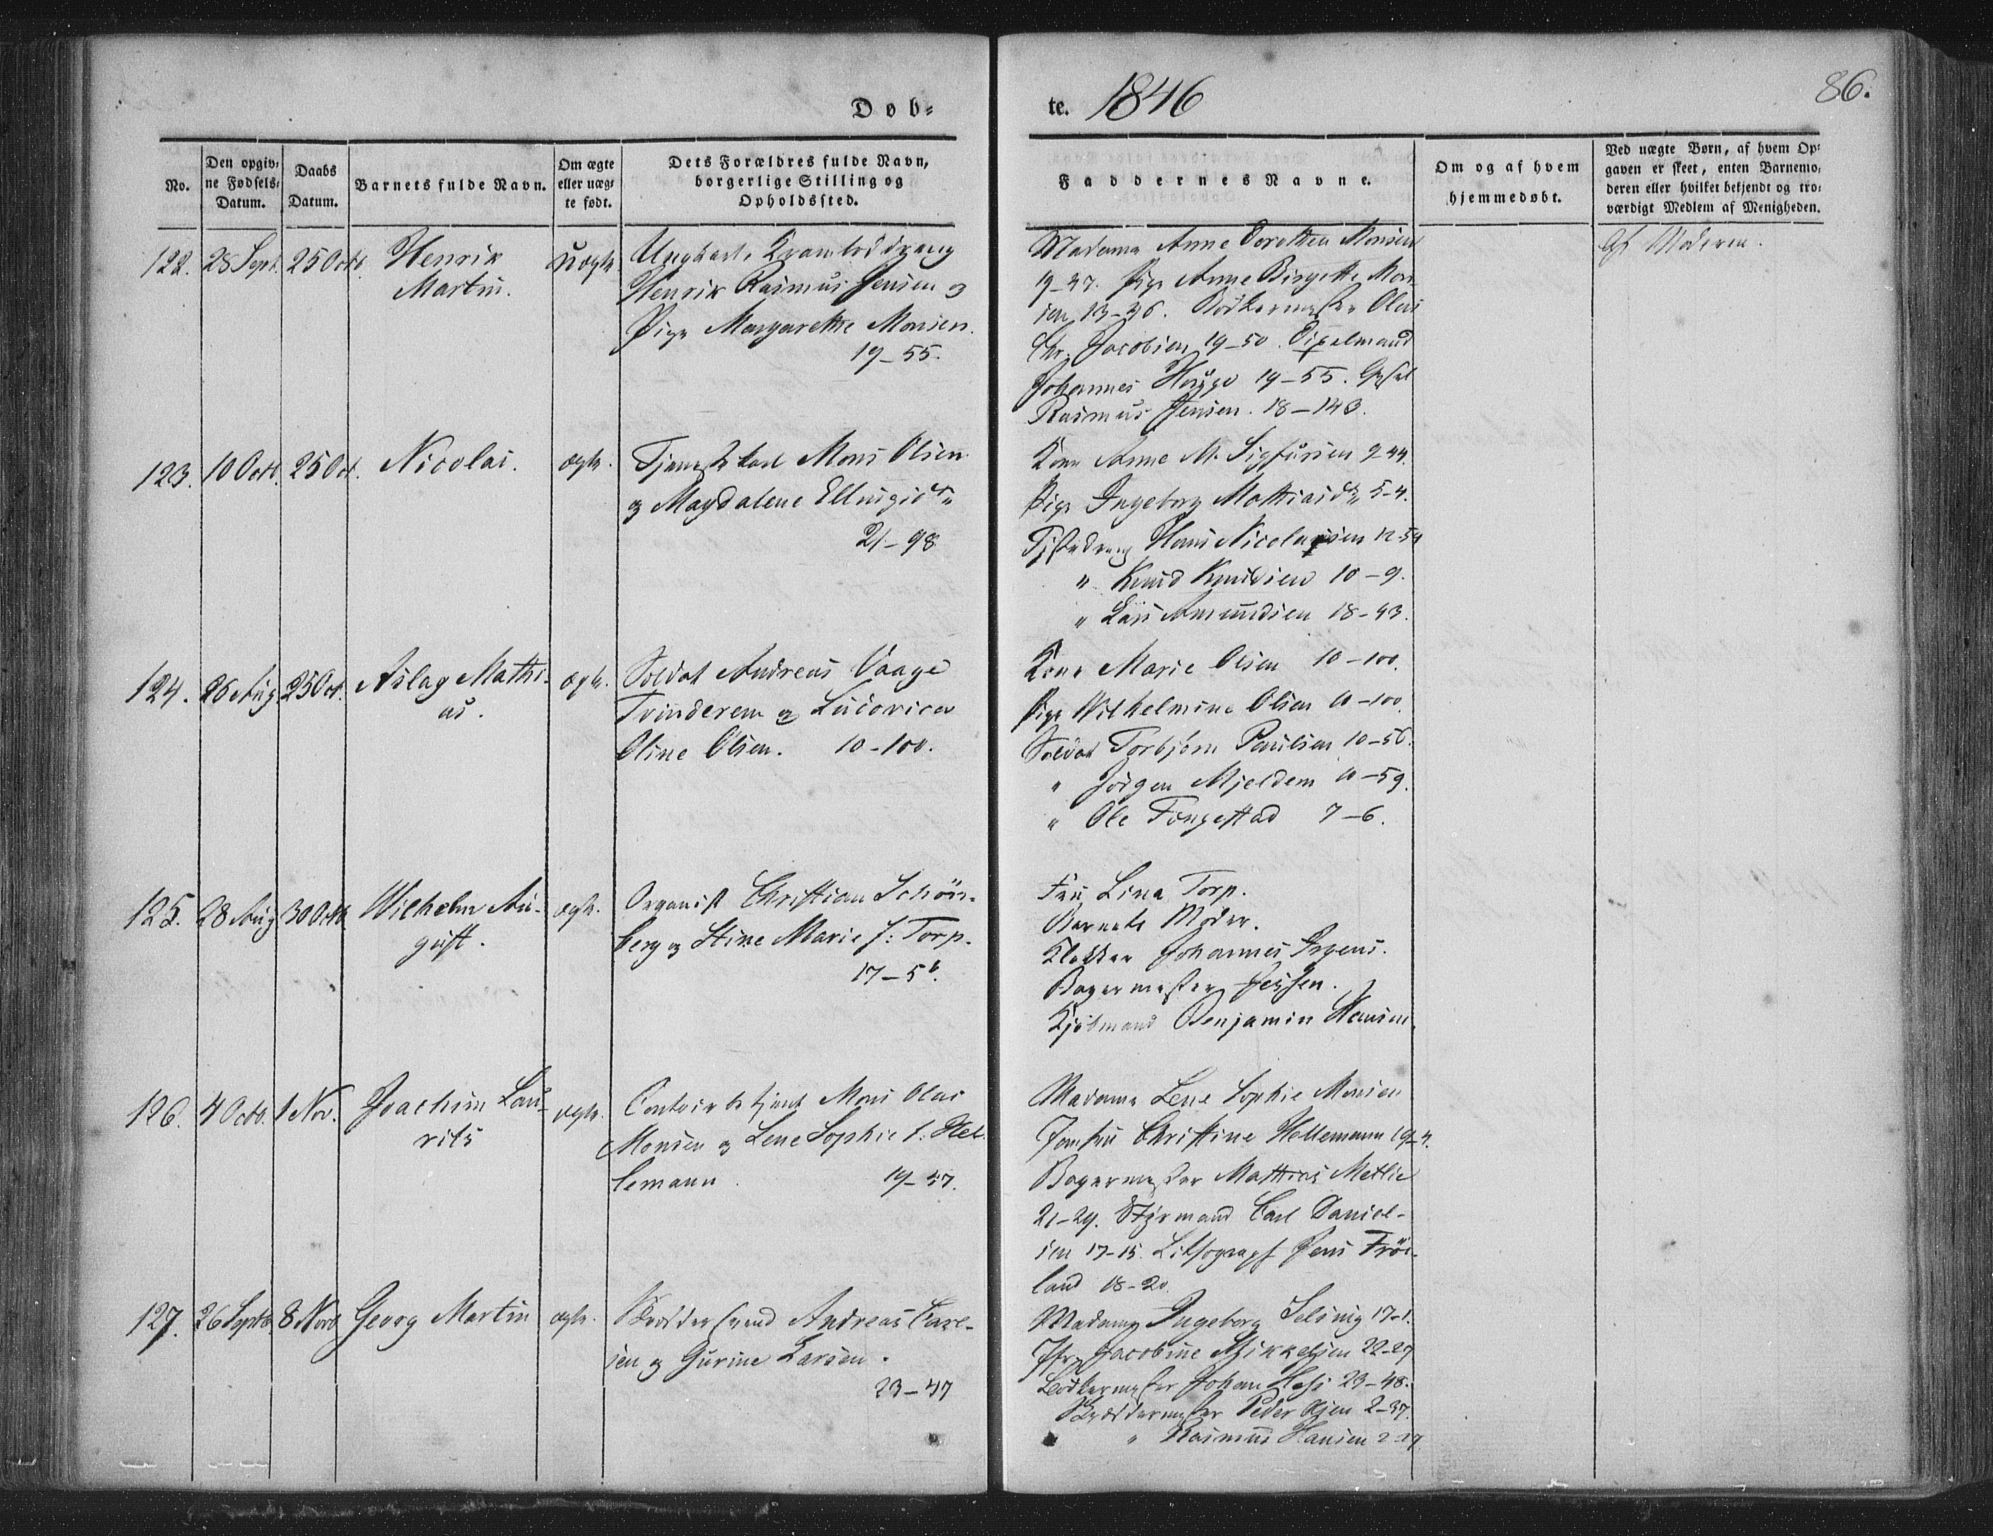 Døb-
te. 1846
86.
No.
Den opgiv-
ne Fødsels-
Datum.
Daabs
Datum.
Barnets fulde Navn.
Om ægte
eller uæg-
te født.
Dets Forældres fulde Navn,
borgerlige Stilling og
Opholdssted.
Faddernes Navne.
Om og af hvem
hjemmedøbt.
Ved uægte Børn, af hvem Op-
gaven er skeet, enten Barnemo-
deren eller hvilket bekjendt og tro-
værdigt Medlem af Menigheden.
122. 28 Sept. 25 Octb. Henrik
Martin.
Uægte.
Ungkarl, Kramboddreng
Henrik Rasmus Jensen og
Pige Margarethe Monsen.
19-55.
Madame Anne Dorothea Monsen
9-47. Pige Anne Birgitte Mon-
sen 13-36. Bødkermester Olai
Chr. Jacobsen 19-50.
Johannes 19-55.
Rasmus Jensen. 18-143.
Af Moderen.
123. 10 Octb. 25 Oct. Nicolai. ægte.
Tjenestekarl Mons Olsen
og Magdalene Ellingsdtr
21-98
Kone Anne M. Sigfusen 2 44.
Pige Ingeborg Mathiasdtr 5-4.
Tjstedreng Hans Nicolaysen 12-54
" Knud Knudsen 10-9.
" Lars Amundsen 18-43.
124. 26 Aug 25 Oct. Aslag Mathi-
as.
ægte.
Soldat Andreas Vaage
Trinderem og Ludovica
Oline Olsen. 10-100.
Kone Marie Olsen 10-100.
Pige Wilhelmine Olsen 10-100.
Soldat Torbjørn Paulsen 10-56.
" Jørgen Mjeldem 10-59.
" Ole Tingestad 7-6.
125. 28 Aug 30 Octb Wilhelm Au-
gust.
ægte.
Organist Christian Schön-
berg og Stine Marie f: Torp.
17-5b.
Fru Lina Torp.
Barnets Moder.
Klokker Johannes Irgens.
Bagermester Jessen.
Kjøbmand Benjamin Hansen.
126. 4 Octb. 1 Nov. Joachim Lau-
rits
ægte.
Contoirbetjent Mons Olai
Monsen og Lene Sophie f. Hel-
lemann. 19-47.
Madame Lene Sophie Monsen
Jomfru Christine Hellemann 19-4.
Bagermester Mathias Metlie
21-29. Styrmand Carl Daniel-
sen 17-15. Lithograph Jens Frøi-
land 18-20.
127. 26 Septb. 8 Novb Georg Martin ægte.
Skræddersvend Andreas Carl-
sen og Gurine Larsen.
23-47
Madame Ingeborg Selsing 17-1.
Jfr. Jacobine Mikkelsen 22-27
Bødkermester Johan Hess 23-48.
Skræddermester Peder Olsen 2-37.
" Rasmus Hansen 2-27